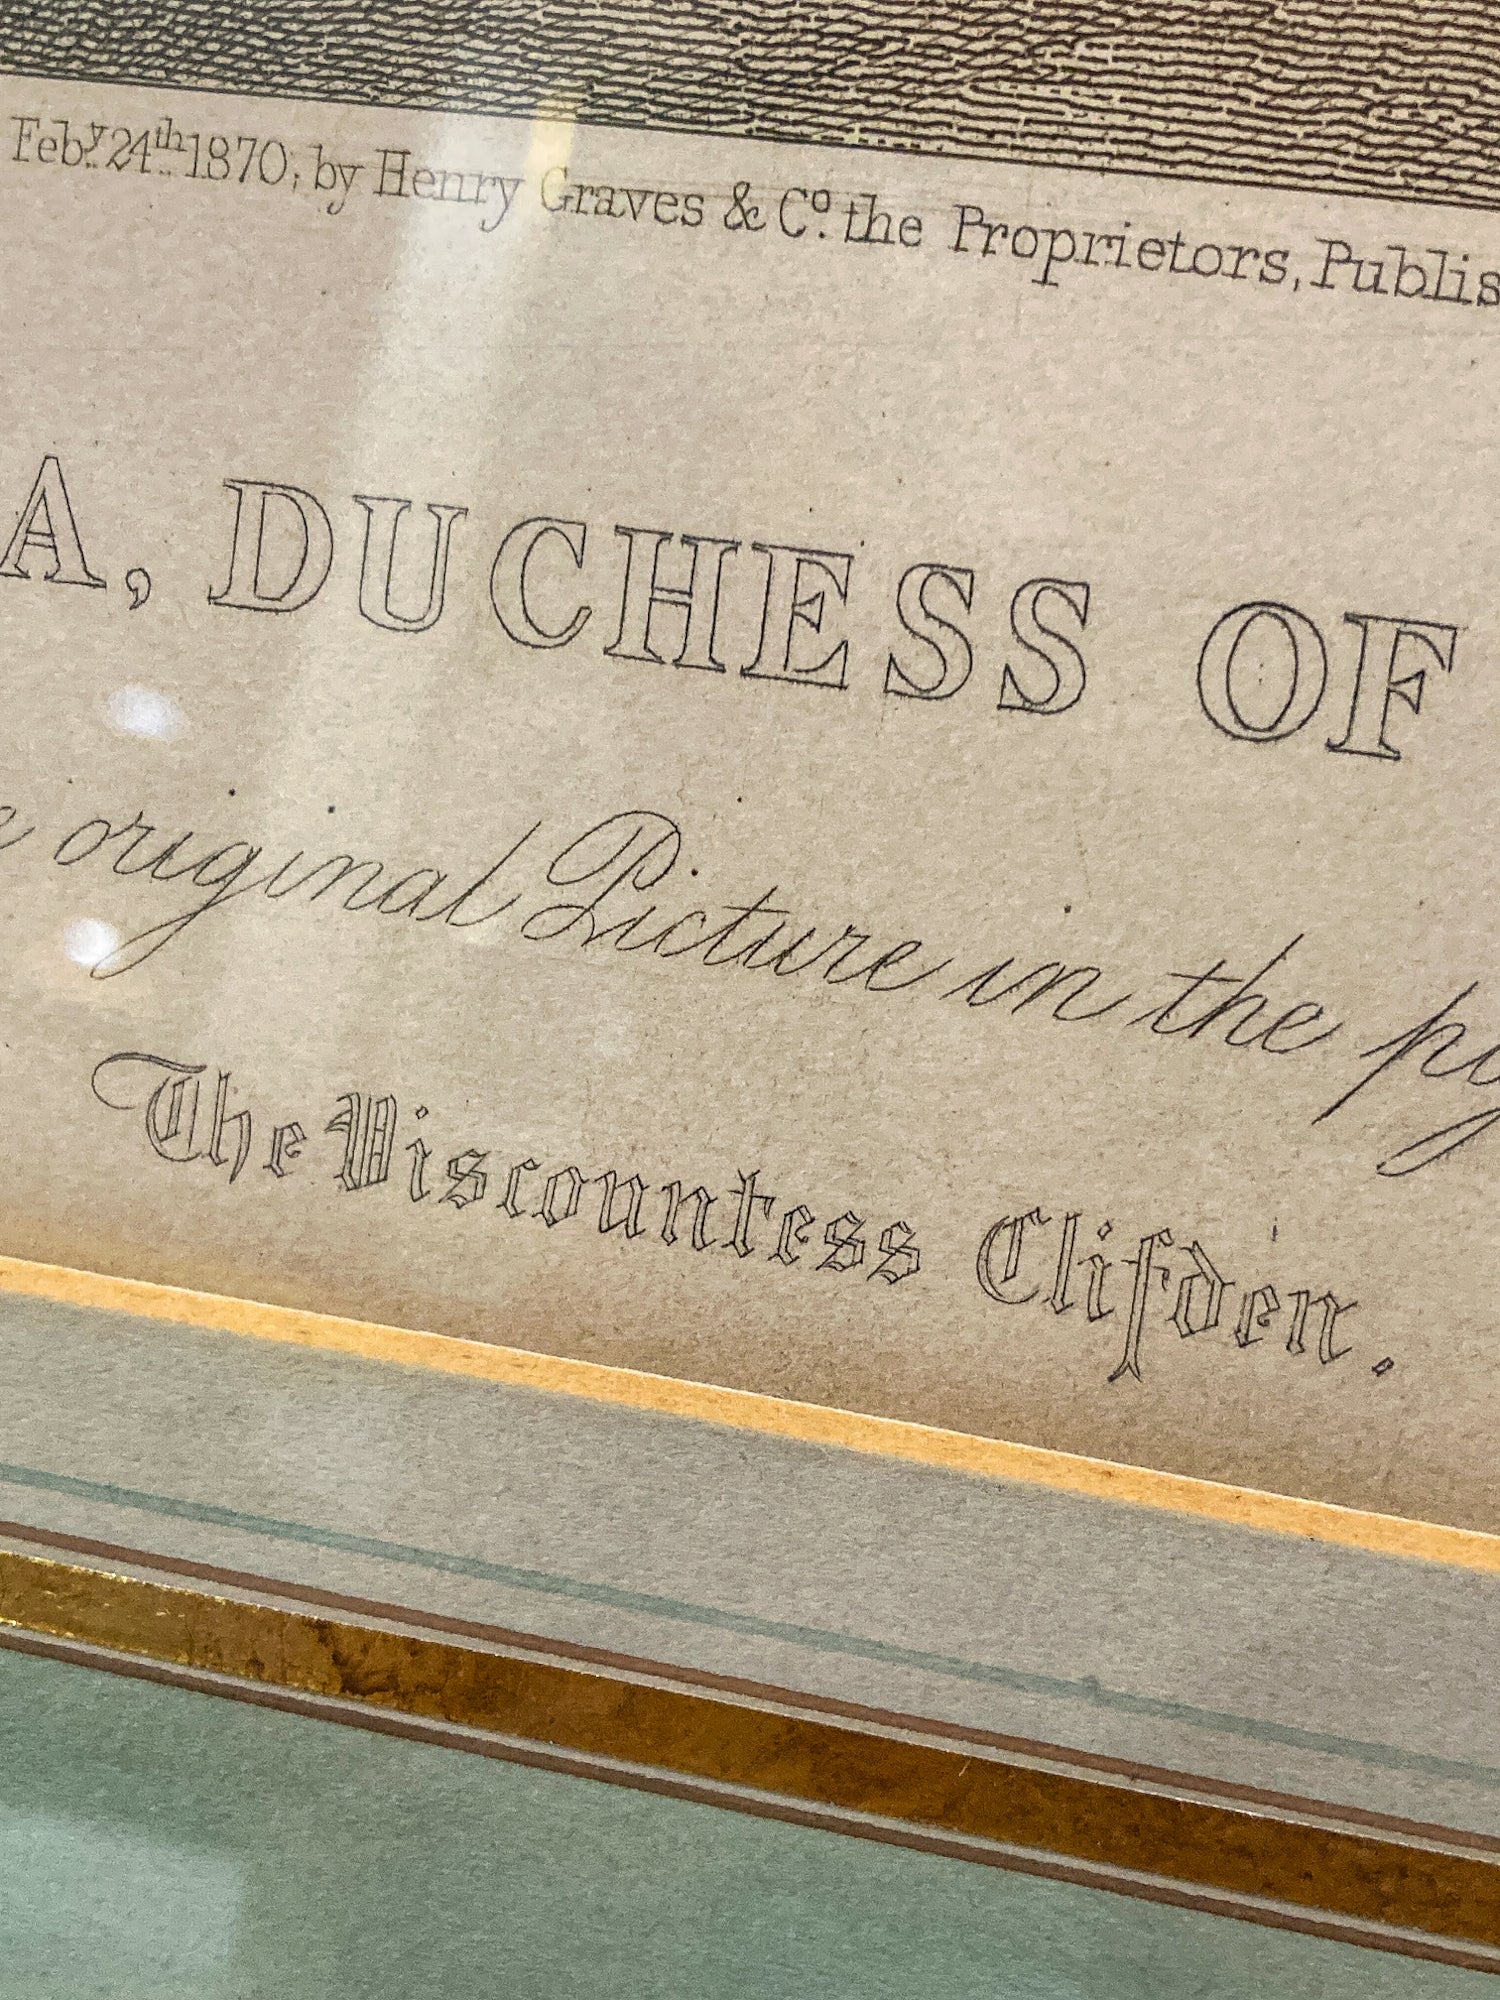 Feb.y 24th 1870, by Henry Graves & Co. the Proprietors, Publis
A, DUCHESS OF
e original Picture in the
The Viscountess Clifden.